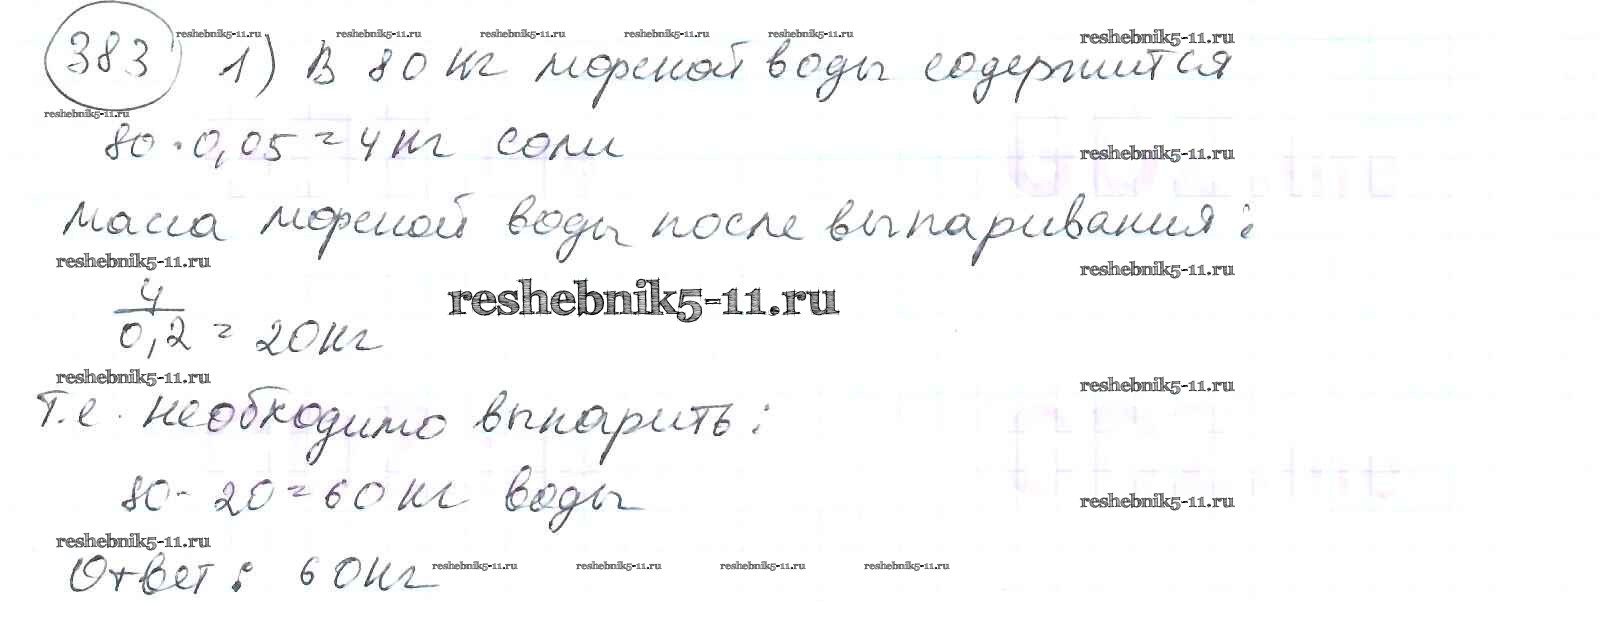 reshebnik5-11.ru reshebnik5-11.ru reshebnik5-11.ru reshebnik5-11.ru reshebnik5-11.ru reshebnik5-11.ru
383 1) В 80 кг морской воды содержится
reshebnik5-11.ru
80 · 0,05 = 4 кг соли reshebnik5-11.ru
масса морской воды после выпаривания:
reshebnik5-11.ru reshebnik5-11.ru
4
reshebnik5-11.ru
0,2 = 20 кг
reshebnik5-11.ru reshebnik5-11.ru
т.е. необходимо выпарить:
80 - 20 = 60 кг воды reshebnik5-11.ru
reshebnik5-11.ru
Ответ: 60 кг reshebnik5-11.ru reshebnik5-11.ru reshebnik5-11.ru reshebnik5-11.ru